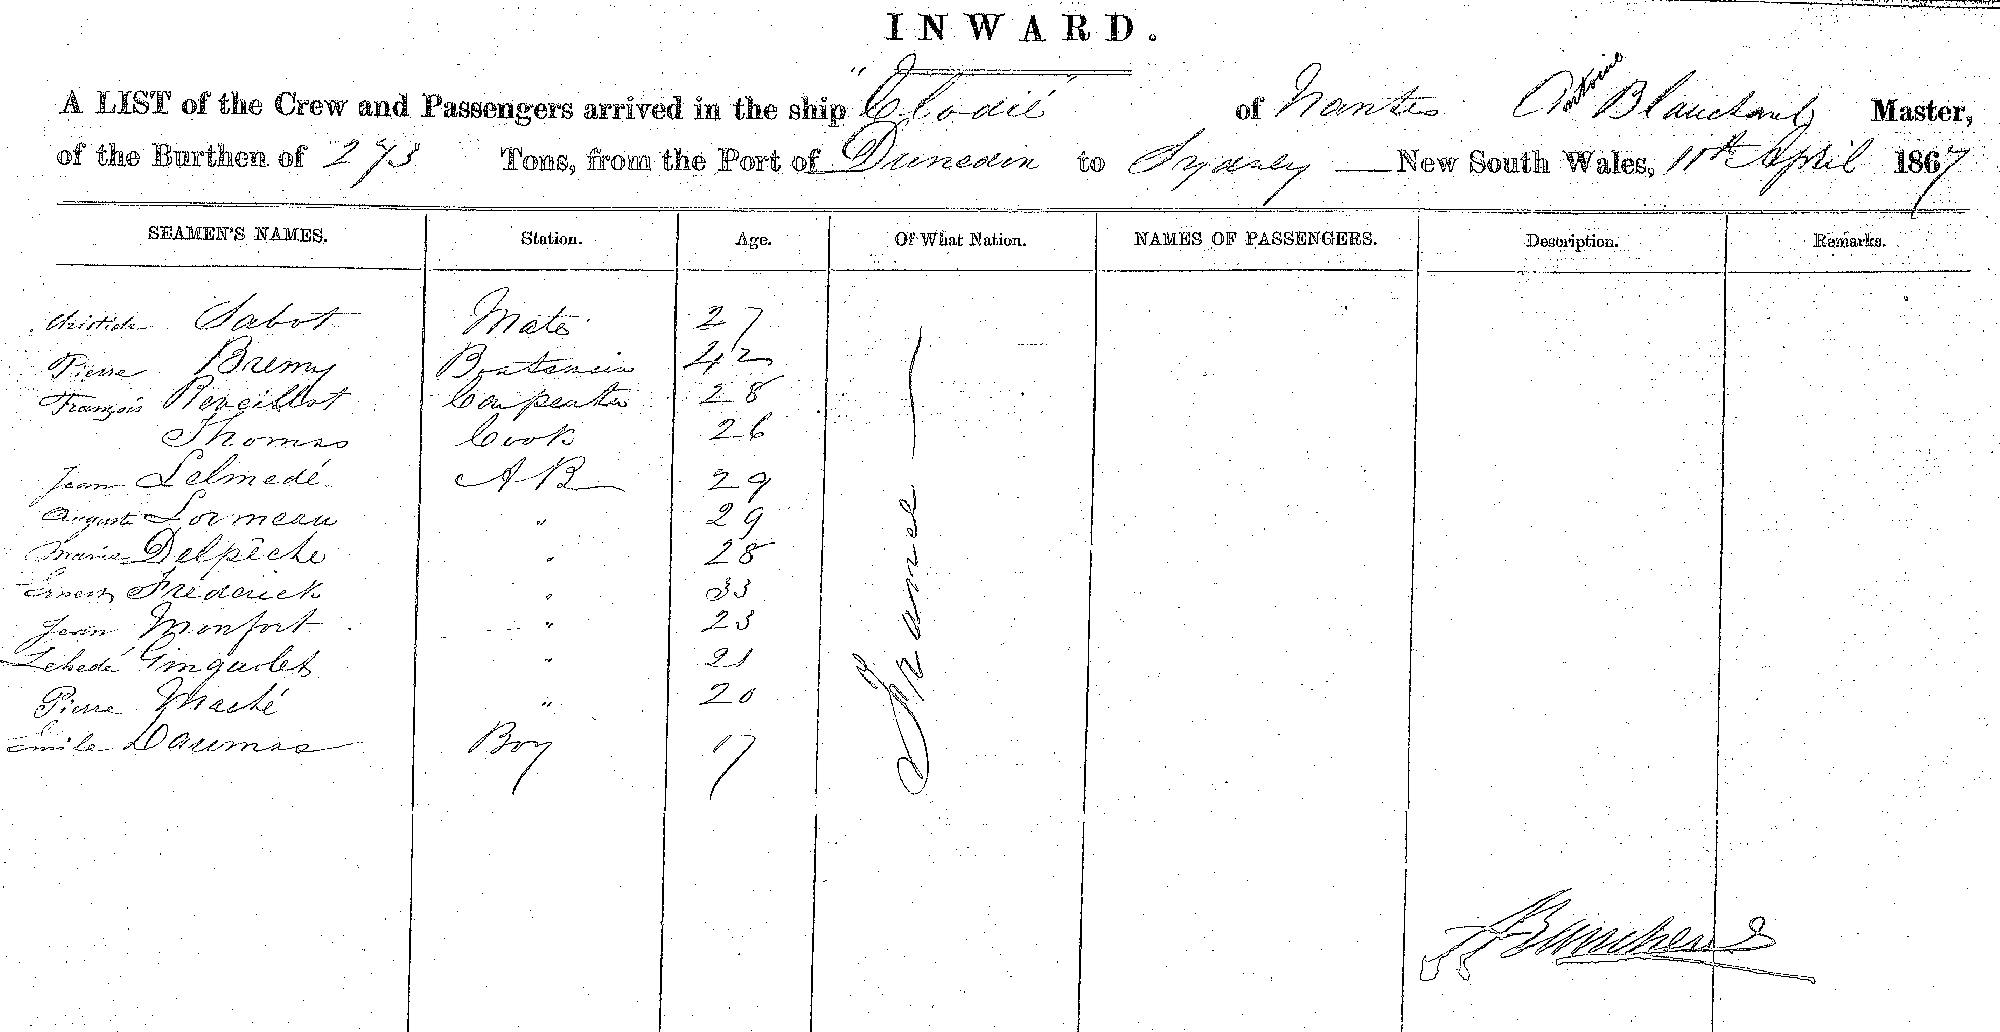 INWARD.
A LIST of the Crew and Passengers arrived in the ship "Elodié" of Nantes Antoine Blanchard Master,
of the Burthen of 273 Tons, from the Port of Dunedin to Sydney — New South Wales, 11th April 1867
SEAMEN'S NAMES. Station. Age. Of What Nation. NAMES OF PASSENGERS. Description. Remarks.
Sabot Mate 27
Pierre Bremy Boatswain 42
François Carpenter 28
Thomas Cook 26
Jean Lelmedé AB 29
Auguste Lormeau " 29
Marie Delpèche " 28
Ernest Fréderick " 33
Jean Monfort " 23
Ginguolet " 21
Pierre Maché " 20
Emile Daumas Boy 17
France